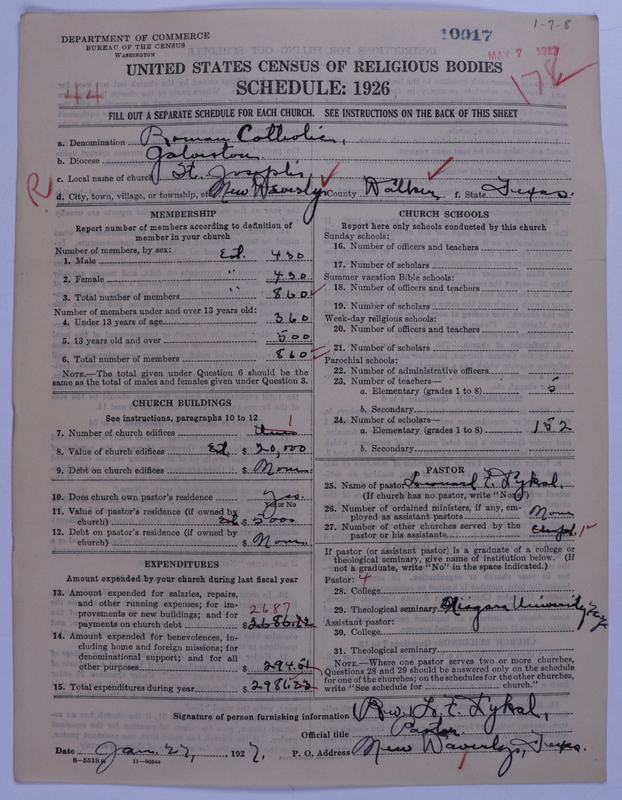 1-7-8
DEPARTMENT OF COMMERCE
BUREAU OF THE CENSUS
WASHINGTON
10017
MAY 7 1927
178
44
UNITED STATES CENSUS OF RELIGIOUS BODIES
SCHEDULE: 1926
FILL OUT A SEPARATE SCHEDULE FOR EACH CHURCH. SEE INSTRUCTIONS ON THE BACK OF THIS SHEET
a. Denomination Roman Catholic,
b. Diocese Galveston
c. Local name of church St. Joseph's
R
d. City, town, village, or township, etc. New Waverly County Walker f. State Texas.
MEMBERSHIP
Report number of members according to definition of
member in your church
Number of members, by sex:
1. Male Est. 430
2. Female " 430
3. Total number of members " 860
Number of members under and over 13 years old:
4. Under 13 years of age 360
5. 13 years old and over 500
6. Total number of members 860
NOTE.—The total given under Question 6 should be the
same as the total of males and females given under Question 3.
CHURCH BUILDINGS
See instructions, paragraphs 10 to 12
7. Number of church edifices 1
8. Value of church edifices Est. $ 20,000
9. Debt on church edifices $ None.
10. Does church own pastor's residence Yes
Yes or No
11. Value of pastor's residence (if owned by
church) Est $ 5000
12. Debt on pastor's residence (if owned by
church) $ None
EXPENDITURES
Amount expended by your church during last fiscal year
13. Amount expended for salaries, repairs,
and other running expenses; for im-
provements or new buildings; and for
payments on church debt 2687 $ 2686.22
14. Amount expended for benevolences, in-
cluding home and foreign missions; for
denominational support; and for all
other purposes $ 294
15. Total expenditures during year $
CHURCH SCHOOLS
Report here only schools conducted by this church
Sunday schools:
16. Number of officers and teachers
17. Number of scholars
Summer vacation Bible schools:
18. Number of officers and teachers
19. Number of scholars
Week-day religious schools:
20. Number of officers and teachers
21. Number of scholars
Parochial schools:
22. Number of administrative officers
23. Number of teachers—
a. Elementary (grades 1 to 8) 5
b. Secondary
24. Number of scholars—
a. Elementary (grades 1 to 8) 152
b. Secondary
PASTOR
25. Name of pastor Leonard E. Dykal,
(If church has no pastor, write "None")
26. Number of ordained ministers, if any, em-
ployed as assistant pastors None
27. Number of other churches served by the
pastor or his assistants 1
If pastor (or assistant pastor) is a graduate of a college or
theological seminary, give name of institution below. (If
not a graduate, write "No" in the space indicated.)
Pastor: 4
28. College
29. Theological seminary Niagara University N.Y.
Assistant pastor:
30. College
31. Theological seminary
NOTE.—Where one pastor serves two or more churches,
Questions 28 and 29 should be answered only on the schedule
for one of the churches; on the schedules for the other churches,
write "See schedule for church."
Signature of person furnishing information Rev. L. E. Dykal,
Official title Pastor
Date Jan. 27, 1927. P. O. Address New Waverly, Texas.
8-5518 11-9054